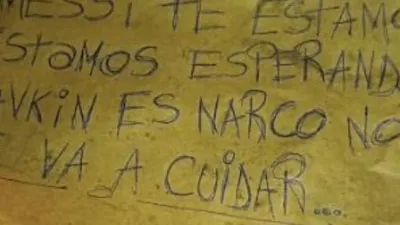 MESSI TE ESTAMO
ESTAMOS ESPERAND
AVKIN ES NARCO NO
VA A CUIDAR....